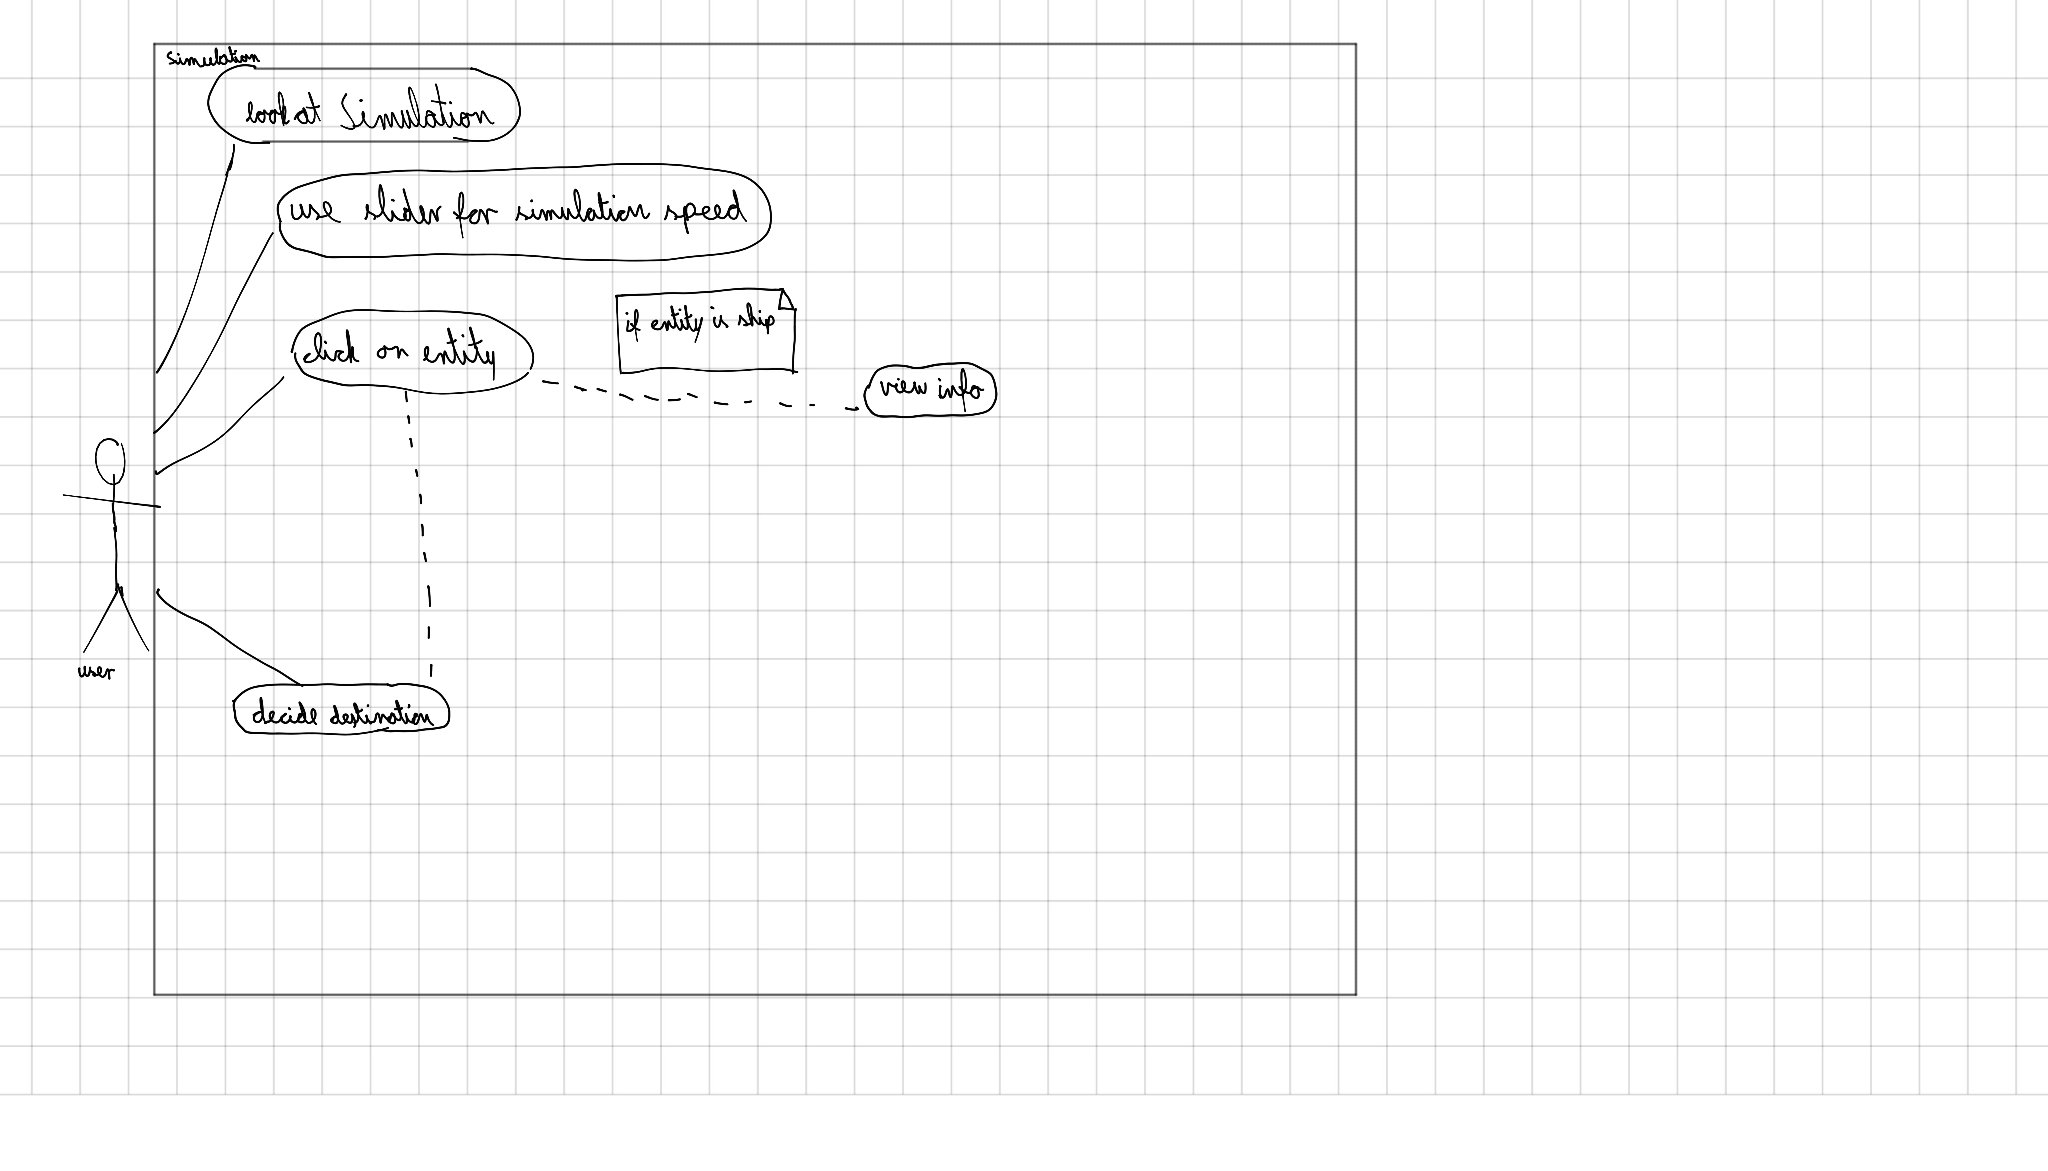 simulation
look at Simulation
use slider for simulation speed
if entity is ship
click on entity
view info
user
decide destination